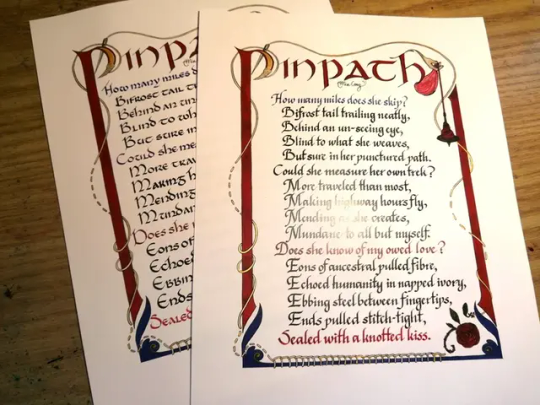 Pinpath
How many miles does she skip?
Bifrost tail trailing neatly,
Behind an un-seeing eye,
Blind to what she weaves,
But sure in her punctured path.
Could she measure her own trek?
More traveled than most,
Making highway hours fly,
Mending as she creates,
Mundane to all but myself.
Does she know of my owed love?
Eons of ancestral pulled fibre,
Echoed humanity in napped ivory,
Ebbing steel between fingertips,
Ends pulled stitch-tight,
Sealed with a knotted kiss.
Pinpa
How many miles d
Bifrost tail t
Behind an un
Blind to wh
But sure in
Could she me
More trav
Making h
Mending
Mundan
Does she
Eons of
Echoed
Ebbin
Ends
Sealed